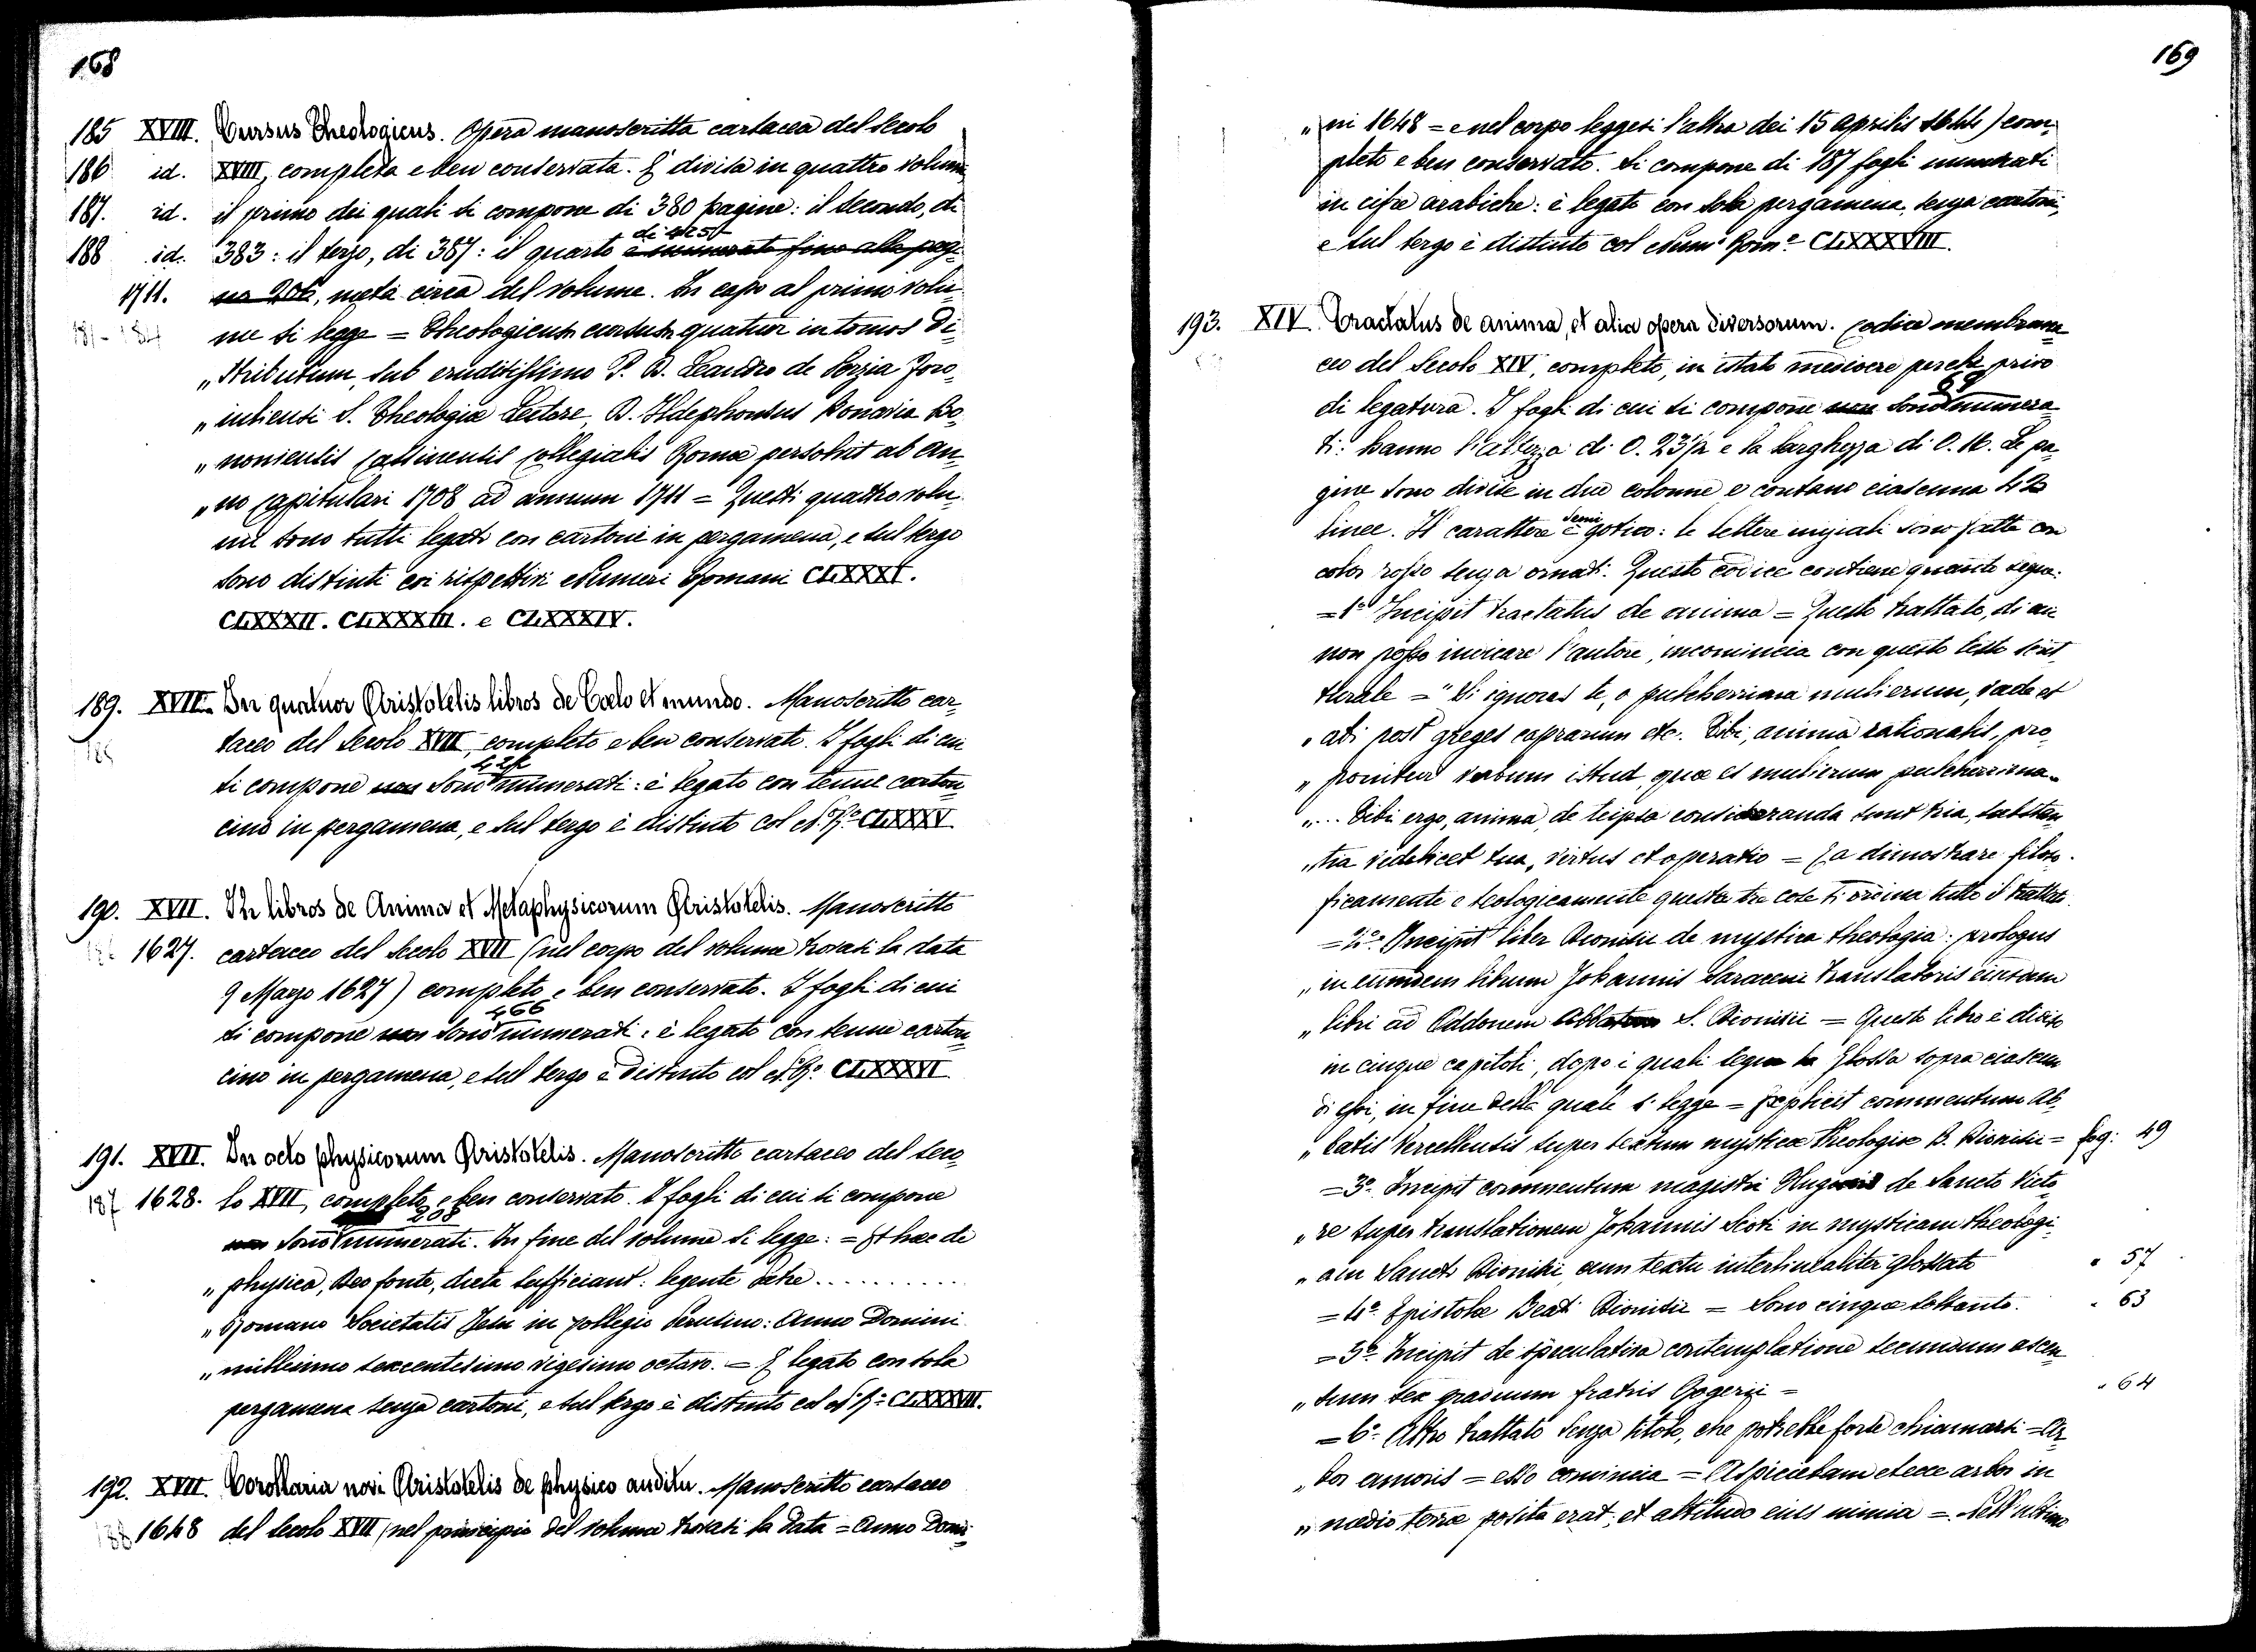 168
185 XVIII. Cursus Theologicus. Opera manoscritta cartacea del Secolo
186 id. XVIII, completa e ben conservata. È divisa in quattro volumi,
187. id. il primo dei quali si compone di 380 pagine: il secondo, di
188 id. 383: il terzo, di 387: il quarto è numerato fino alla pagi-
1711. na 206, metà circa del volume. In capo al primo volu-
181-184 me si legge = Theologicus cursus quatuor in tomos di-
„ stributum, sub eruditissimo P. D. Leandro de
„ S. Theologiæ Lectore, D. Ildephonsus Bo-
„ noniensis Cassinensis Collegialis Romæ persolvit ab an-
„ no Capitulari 1708 ad annum 1711 = Questi quattro volu-
mi sono tutti legati con cartone in pergamena, e sul tergo
sono distinti coi rispettivi Numeri Romani CLXXXI.
CLXXXII. CLXXXIII. e CLXXXIV.
189. XVII. In quatuor Aristotelis libros de Cœlo et mundo. Manoscritto car-
185 taceo del Secolo XVII, completo e ben conservato. I fogli di cui
si compone non sono numerati: è legato con tenue carton-
cino in pergamena, e sul tergo è distinto col N.° R.° CLXXXV
190. XVII. In libros de Anima et Metaphysicorum Aristotelis. Manoscritto
186 1627. cartaceo del Secolo XVII (nel corpo del volume trovasi la data
9 Marzo 1627) completo e ben conservato. I fogli di cui
466
si compone non sono numerati: è legato con tenue carton-
cino in pergamena, e sul tergo è distinto col N.° R.° CLXXXVI
191. XVII. In octo physicorum Aristotelis. Manoscritto cartaceo del Seco-
187 1628. lo XVII, completo e ben conservato. I fogli di cui si compone
208
non sono numerati. In fine del volume si legge: = Et hæc de
„ physica, Deo fonte, dicta sufficiant: legente Patre ..........
„ Romano Societatis Jesu in Collegio Perusino: Anno Domini
„ millesimo sexcentesimo vigesimo octavo. = È legato con sola
pergamena senza cartoni, e sul tergo è distinto col N.° R.° CLXXXVII.
192. XVII. Corollaria novi Aristotelis de physico auditu. Manoscritto cartaceo
188 1648 del Secolo XVII (nel principio del volume trovasi la data = Anno Domi-
169
„ ni 1648 = e nel corpo leggesi l'altra dei 15 Aprilis 1644) com-
pleto e ben conservato. Si compone di 187 fogli numerati
in cifre arabiche: è legato con sola pergamena, senza cartoni,
e sul tergo è distinto col Num.° Rom.° CLXXXVIII.
193. XIV. Tractatus de anima, et alia opera diversorum. Codice membrana-
ceo del Secolo XIV, completo, in istato mediocre perchè privo
69
di legatura. I fogli di cui si compone non sono numera-
ti: hanno l'altezza di 0. 23½ e la larghezza di 0. 16. Le pa-
gine sono divise in due colonne e contano ciascuna 42
linee. Il carattere è semigotico: le lettere iniziali sono fatte con
color rosso senza ornati. Questo codice contiene quanto segue:
= 1° Incipit tractatus de anima = Questo trattato, di cui
non posso indicare l'autore, incomincia con questo testo scrit-
turale = “Si ignoras te, o pulcherrima mulierum, vade et
„ abi post greges caprarum etc. Tibi, anima rationalis, pro-
„ ponitur verbum istud, quæ es mulierum pulcherrima.
„ ... Tibi ergo, anima, de teipsa consideranda sunt tria, substan-
„ tia videlicet tua, virtus et operatio = Ea dimostrare filoso-
ficamente e teologicamente queste tre cose si ordina tutto il trattato.
= 2° Incipit liber Dionisii de mystica theologia: prologus
„ in eumdem librum Johannis Saraceni translatoris eiusdem
„ libri ad Oddonem Abbatem S. Dionisii = Questo libro è diviso
in cinque capitoli, dopo i quali segue la Glossa sopra ciascun
di essi, in fine della quale si legge = Explicit commentum Ab-
„ batis Vercellensis super textum mysticæ theologiæ B. Dionisii = fog: 49
= 3° Incipit commentum magistri Hugonis de Sancto Victo-
„ re super translationem Johannis Scoti in mysticam theologi-
„ am Sancti Dionisii, cum textu interlinealiter glossato „ 57
= 4° Epistolæ Beati Dionisii = Sono cinque soltanto. „ 63
= 5° Incipit de speculativa contemplatione secundum ascen-
„ sum sex graduum fratris Rogerii = „ 64
= 6° Altro trattato senza titolo, che potrebbe forse chiamarsi = Ar-
„ bor amoris = esso comincia = Aspiciebam et ecce arbor in
„ medio terræ posita erat, et altitudo eius nimia = Nell'ultimo